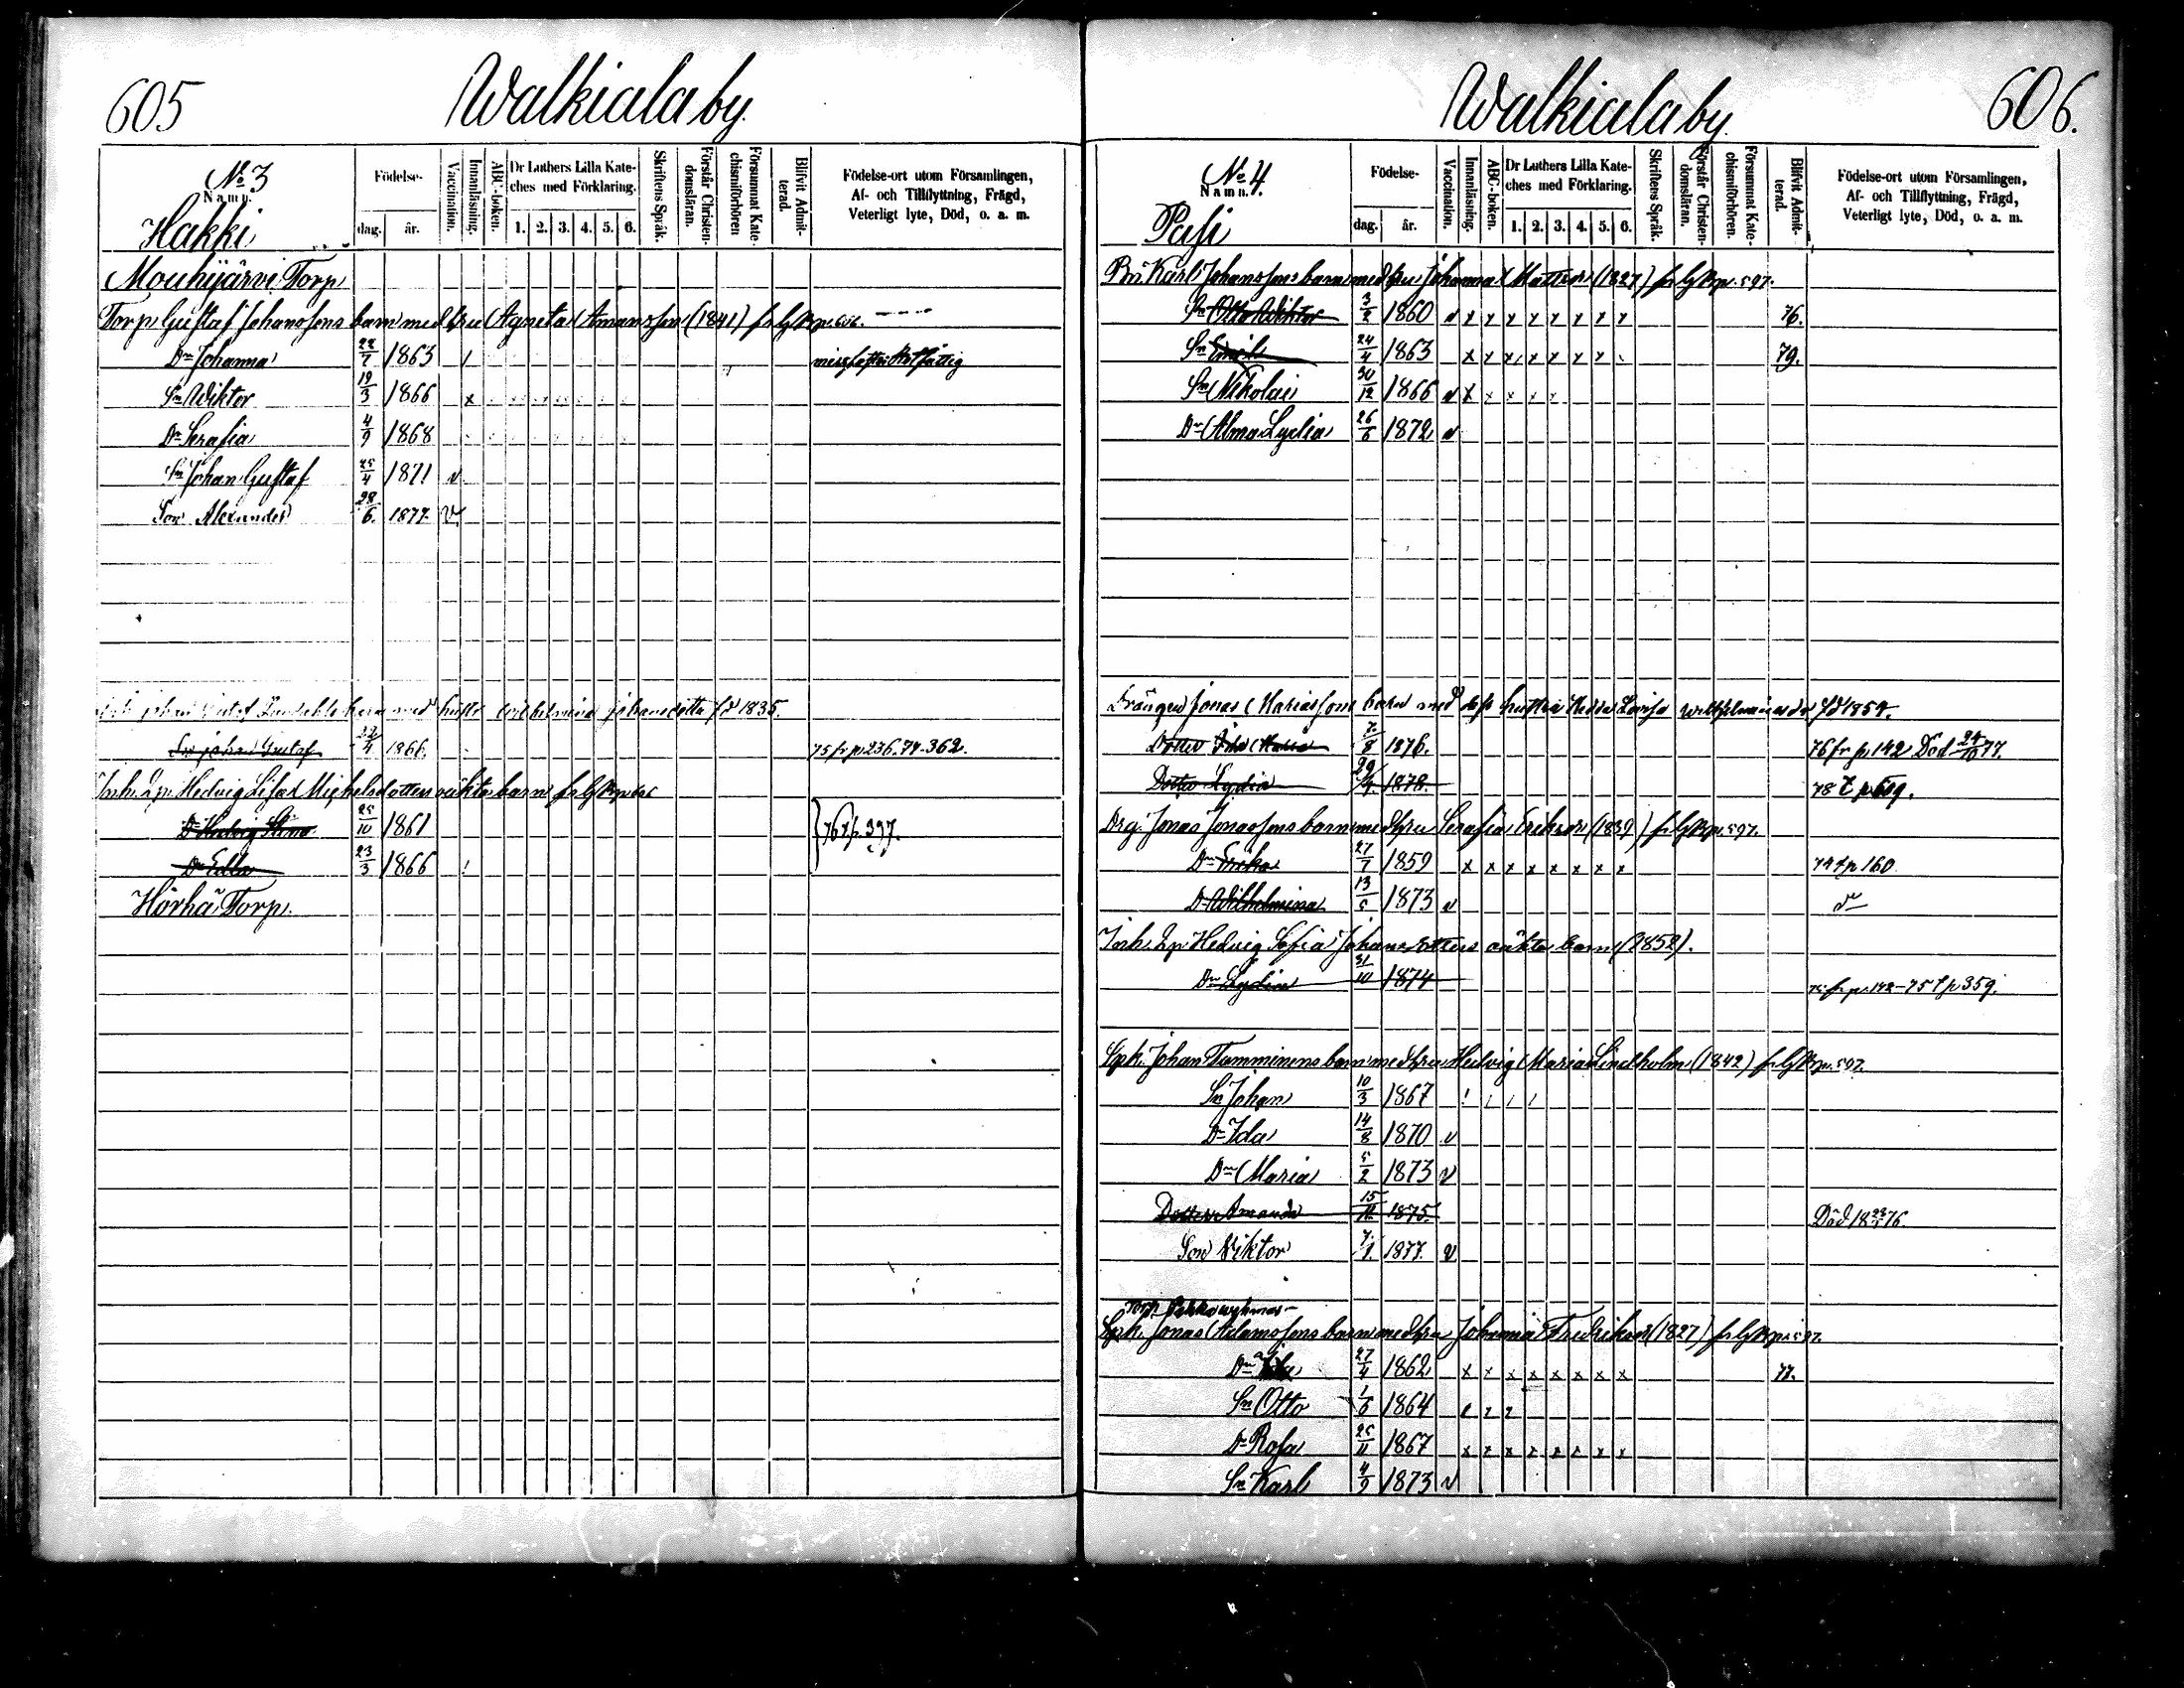 605
Walkiala by.
No 3
Namn.
Hakki
Födelse-
dag. år.
Vaccination.
Innanläsning.
ABC-boken.
Dr Luthers Lilla Kate-
ches med Förklaring.
1. 2. 3. 4. 5. 6.
Skriftens Språk.
Förstår Christen-
domsläran.
Försummat Kate-
chismiförhören
Blifvit Admit-
terad.
Födelse-ort utom Församlingen,
Af- och Tillflyttning, Frägd,
Veterligt lyte, Död, o. a. m.
Mouhijärvi Torp
Torp. Gustaf Johanssons barn med hru Agneta Amansson (1841)
Dr Johanna 22/7 1863
Sn Wiktor 19/3 1866 x
Dr Serafia 4/9 1868
Sn Johan Gustaf 25/4 1871 v
Son Alexander 28/6. 1877. v.
Johan Gustaf barn med hustr Wilhelmina Johansdotter fd 1835.
Son Johan Gustaf 22/4 1866. 75 fr p 236. 77. 362.
Inh. Hedvig Lisa Michelsdotters oäkta barn
Dr Hedvig Stina 25/10 1861 76 t p. 397.
Dr Edla 23/3 1866
Hörhä Torp.
Walkiala by.
606.
No 4.
Namn.
Pasi
Födelse-
dag. år.
Vaccination.
Innanläsning.
ABC-boken.
Dr Luthers Lilla Kate-
ches med Förklaring.
1. 2. 3. 4. 5. 6.
Skriftens Språk.
Förstår Christen-
domsläran.
Försummat Kate-
chismiförhören.
Blifvit Admit-
terad.
Födelse-ort utom Församlingen,
Af- och Tillflyttning, Frägd,
Veterligt lyte, Död, o. a. m.
Karl Johanssons barn med hru Johanna Mattsdr (1827) p. 597.
Sn Otto Wiktor 3/2 1860 v x x x x x x x x 76.
Sn Emil 24/4 1863 x x x x x x x 79.
Sn Nikolai 30/12 1866 v x x x x x
Dr Alma Lydia 26/6 1872 v
Drängen Jonas Mariassons barn med dess hustru Hedda Lovisa Wilhelminasdr fd 1854.
Dotter Ida Maria 7/8 1876. 76 fr p 142 Död 24/10 77.
Dotter Lydia 29/4 1878. 78 t p 619.
Drg. Jonas Jonassons barn med hru Serafia Eriksdr (1839) p. 597.
Dr Erika 27/7 1859 x x x x x x x x 74 t p 160.
Dr Wilhelmina 13/5 1873 v do
Inh. Hedvig Sofia Johansdotters oäkta barn (1852).
Dr Lydia 31/10 1874 fr p. 142 - 75 t p 359.
Spk. Johan Tamminens barn med hru Hedvig Maria Lindholm (1842) p. 597.
Sn Johan 10/3 1867
Dr Ida 14/8 1870 v
Dr Maria 5/2 1873 v
Dotter Amanda 15/11 1875. Död 18 28/5 76.
Son Viktor 7/1. 1877. v
Torp.
Spk. Jonas Adamssons barn med hru Johanna Fredriksdr (1827) p. 597.
Dr Ida 27/4 1862 x x x x x x x x 77.
Sn Otto 1/5 1864
Dr Rosa 25/11 1867 x x x x x x x x
Sn Karl 4/9 1873 v